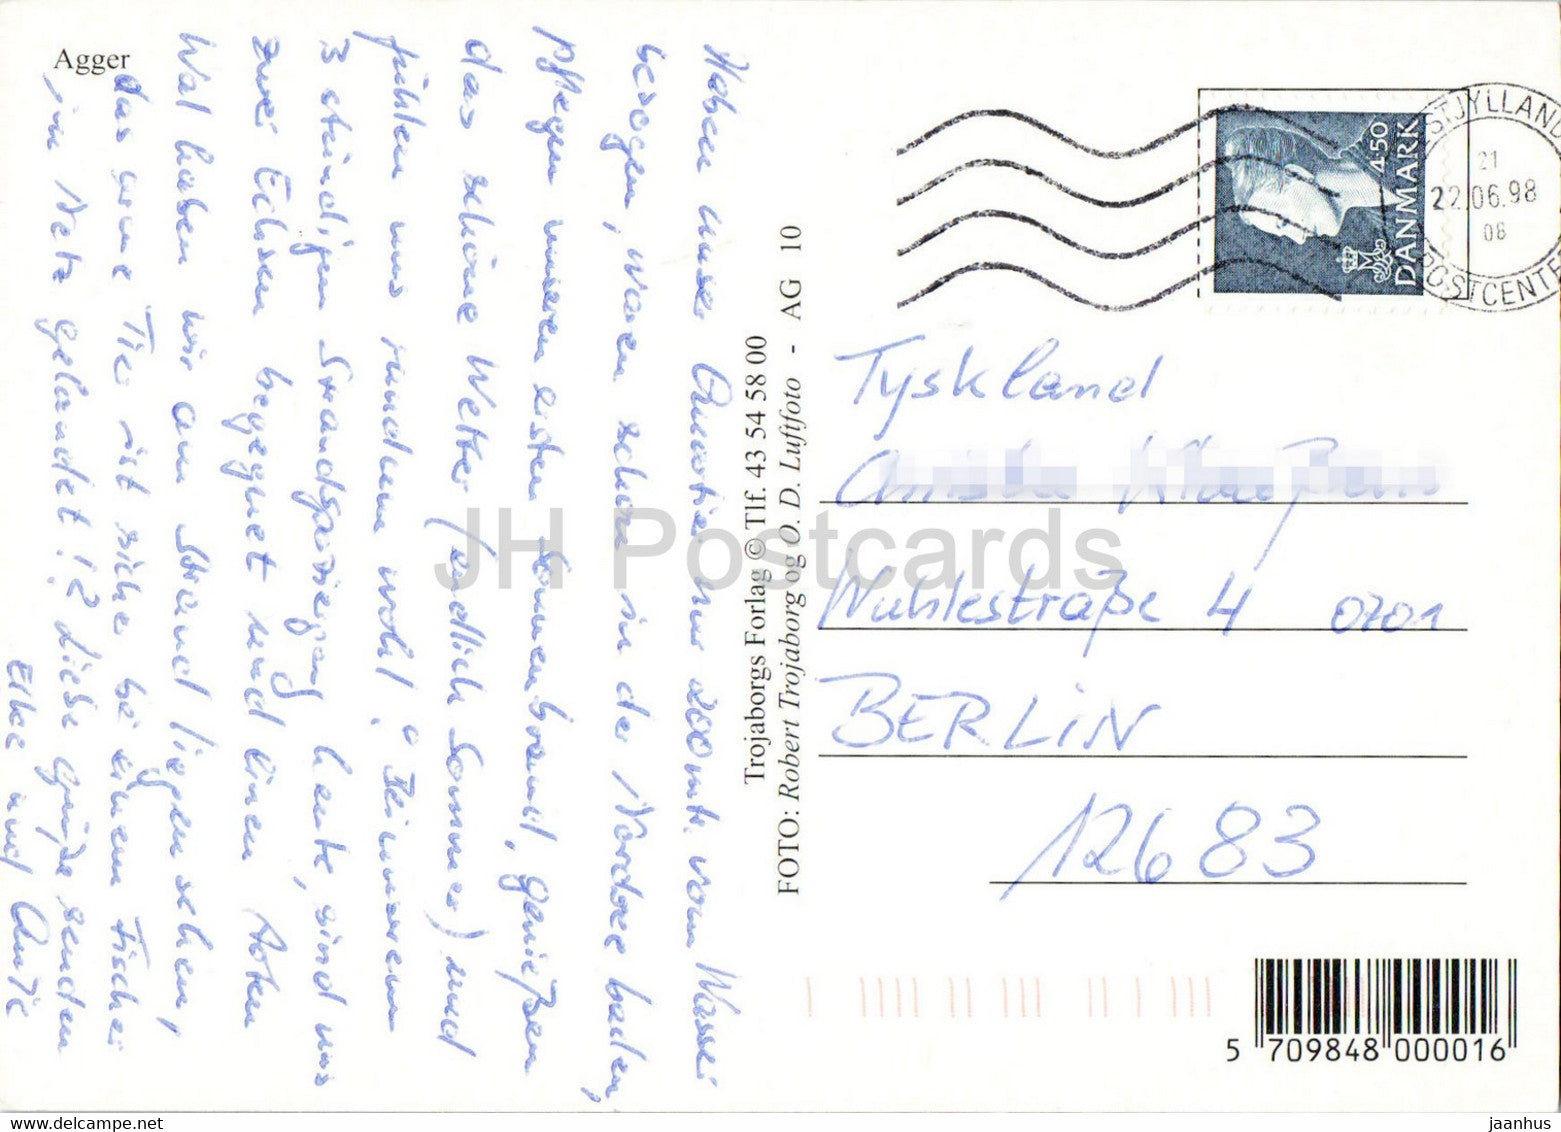 Agger
Haben unser Quartier nur 200 mtr. vom Wasser
bezogen, waren schon in der Nordsee baden,
pflegen unseren ersten Sonnenbrand, genießen
das schöne Wetter (endlich Sommer) und
fühlen uns rundum wohl! Bei unserem
3 stündigen Strandspaziergang heute, sind uns
zwei Echsen begegnet und einen toten
Wal haben wir am Strand liegen sehen,
das arme Tier ist sicher bei einem Fischer
im Netz gelandet!? Liebe Grüße senden
Elke und Antje
Trojaborgs Forlag © Tlf. 43 54 58 00
FOTO: Robert Trojaborg og O. D. Luftfoto - AG 10
DANMARK
4.50
M
STJYLLAND
21
22.06.98
08
POSTCENTE
Tyskland
Wuhlestraße 4 0701
BERLIN
12683
5 709848 000016
JH Postcards
www.delcampe.net
jaanhus